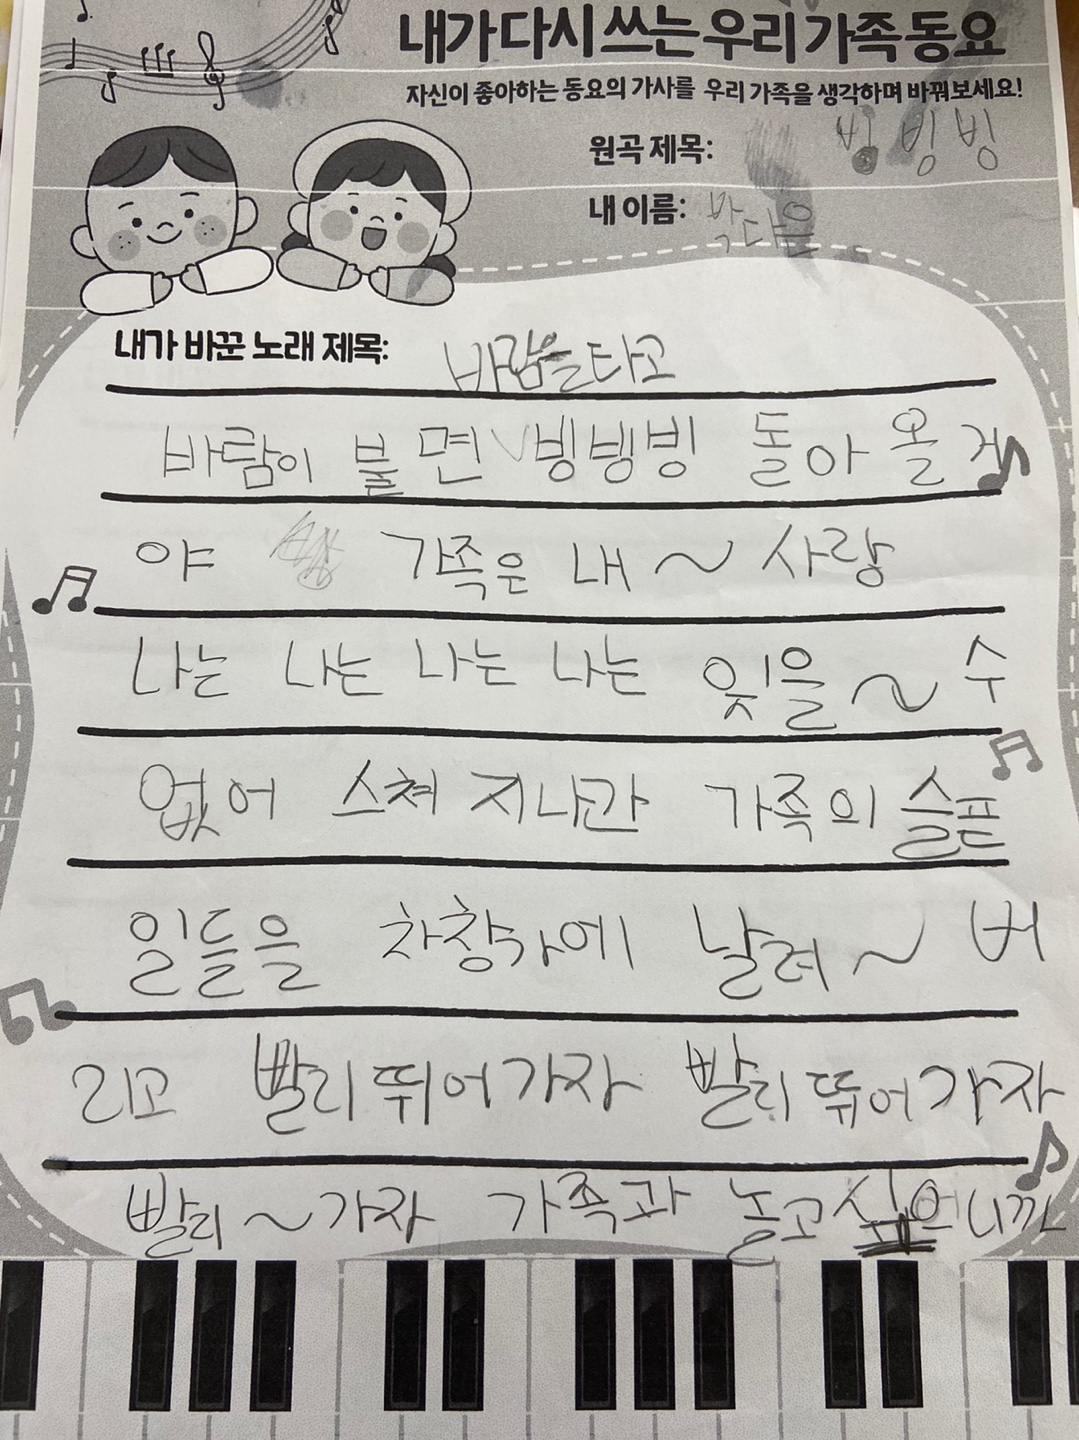 내가 다시 쓰는 우리 가족 동요
자신이 좋아하는 동요의 가사를 우리 가족을 생각하며 바꿔보세요!
원곡 제목: 빙 빙 빙
내 이름: 박다을
내가 바꾼 노래 제목: 바람을 타고
바람이 불면 빙빙빙 돌아 올 거
야 가족은 내 ~ 사랑
나는 나는 나는 나는 잊을 ~ 수
없어 스쳐 지나간 가족의 슬픈
일들을 차창가에 날려 ~ 버
리고 빨리 뛰어가자 빨리 뛰어가자
빨리 ~ 가자 가족과 놀고 싶으니까